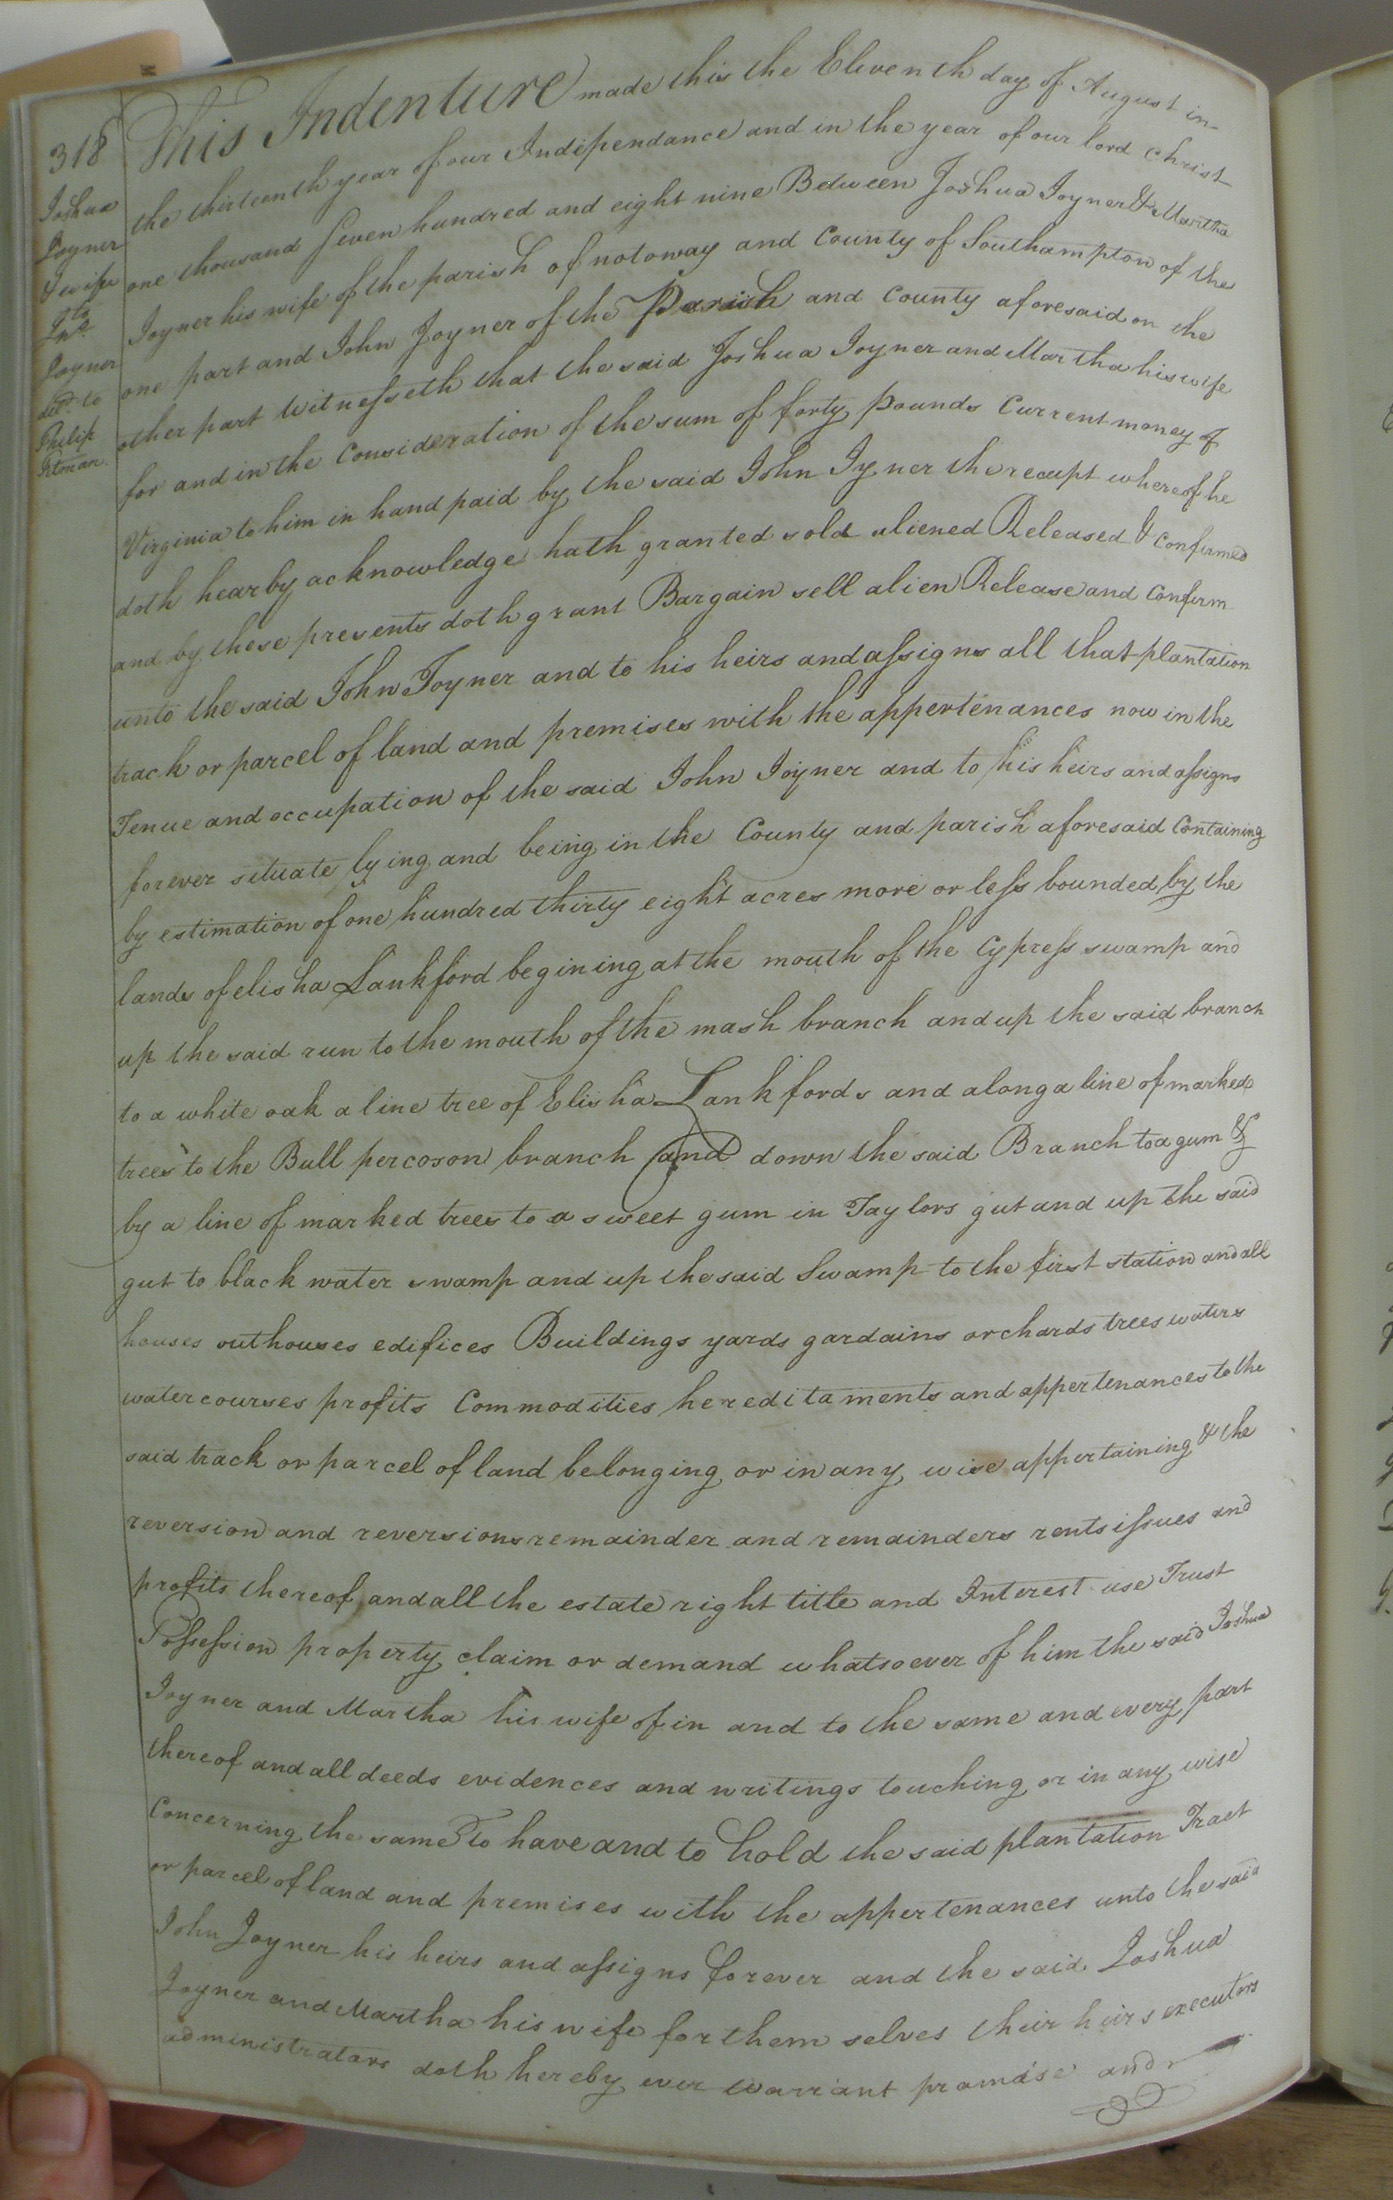 318
Joshua
Joyner
& wife
to
Jno.
Joyner
dld. to
Philip
This Indenture made this the Eleventh day of August in
the thirteenth year of our Indipendance and in the year of our lord Christ
one thousand seven hundred and eight nine Between Joshua Joyner & Martha
Joyner his wife of the parish of notoway and County of Southampton of the
one part and John Joyner of the Parish and County aforesaid on the
other part Witnesseth that the said Joshua Joyner and Martha his wife
for and in the Consideration of the sum of forty pounds Current money of
Virginia to him in hand paid by the said John Jyner the receipt whereof he
doth hearby acknowledge hath granted sold aliened Released & Confirmed
and by these presents doth grant Bargain sell alien Release and Confirm
unto the said John Joyner and to his heirs and assigns all that plantation
track or parcel of land and premises with the appertenances now in the
Tenue and occupation of the said John Joyner and to his heirs and assigns
forever situate lying and being in the County and parish aforesaid Containing
by estimation of one hundred thirty eight acres more or less bounded by the
lands of elisha Lankford begining at the mouth of the Cypress swamp and
up the said run to the mouth of the mash branch and up the said branch
to a white oak a line tree of Elisha Lankfords and along a line of marked
trees to the Bull percoson branch and down the said Branch to a gum &
by a line of marked trees to a sweet gum in Taylors gut and up the said
gut to black water swamp and up the said Swamp to the first station and all
houses outhouses edifices Buildings yards gardains orchards trees waters
water courses profits Commodities hereditaments and appertenances to the
said track or parcel of land belonging or in any wise appertaining & the
reversion and reversions remainder and remainders rents issues and
profits thereof and all the estate right title and Interest use Trust
Possession property claim or demand whatsoever of him the said Joshua
Joyner and Martha his wife of in and to the same and every part
thereof and all deeds evidences and writings touching or in any wise
Concerning the same To have and to hold the said plantation Tract
or parcel of land and premises with the appertenances unto the said
John Joyner his heirs and assigns forever and the said Joshua
Joyner and Martha his wife for them selves their heirs executors
administrators doth hereby ever warrant promise and